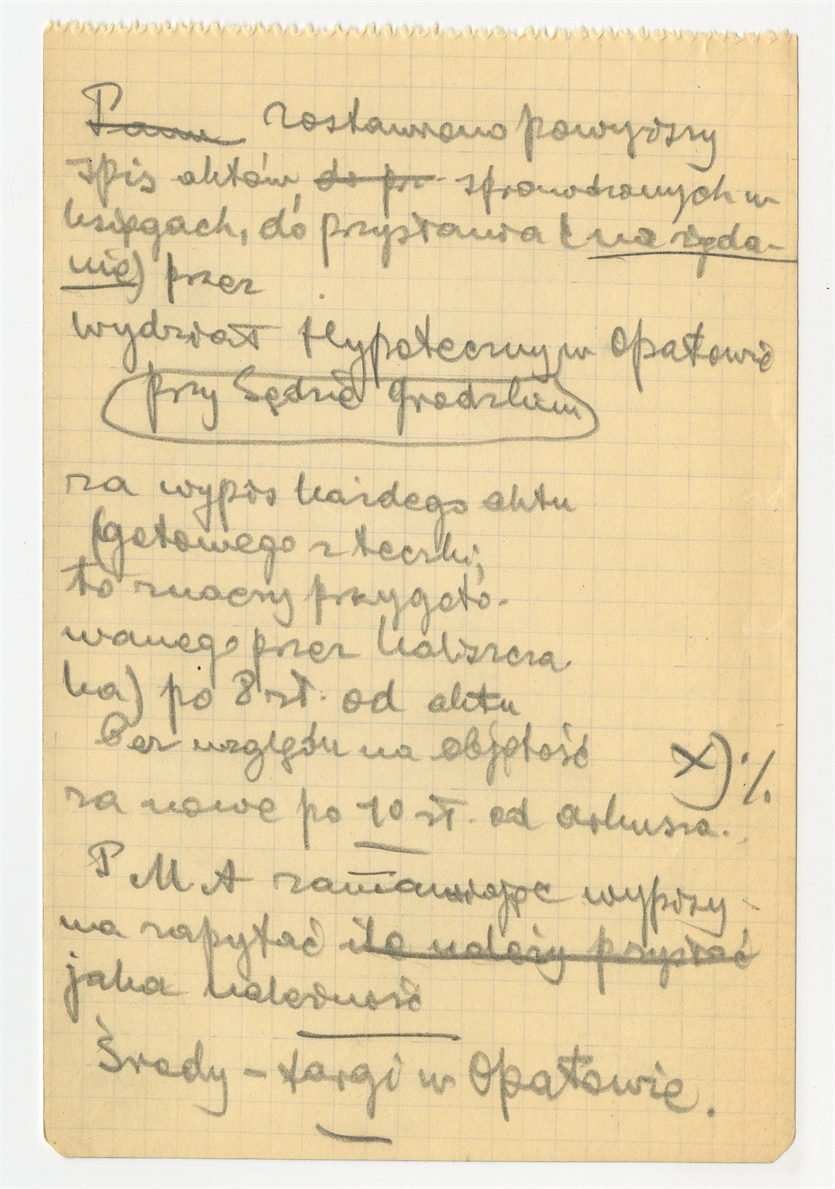 ~~Panu~~ zostawiono powyższy
spis aktów, ~~do pr~~ sprawdzonych w
księgach, do przysłania (na żąda-
nie) przez
Wydział Hypoteczny w Opatowie
przy Sądzie Grodzkim
za wypis każdego aktu
(gotowego z teczki,
to znaczy przygoto-
wanego przez
ka) po 8 zł. od aktu
Bez względu na objętość X) %
za nowe po 10 zł. od arkusza.
P.M.A zamawiając wypisy
ma zapytać ~~ile należy przysłać~~
jaka należność
Środy – targi w Opatowie.